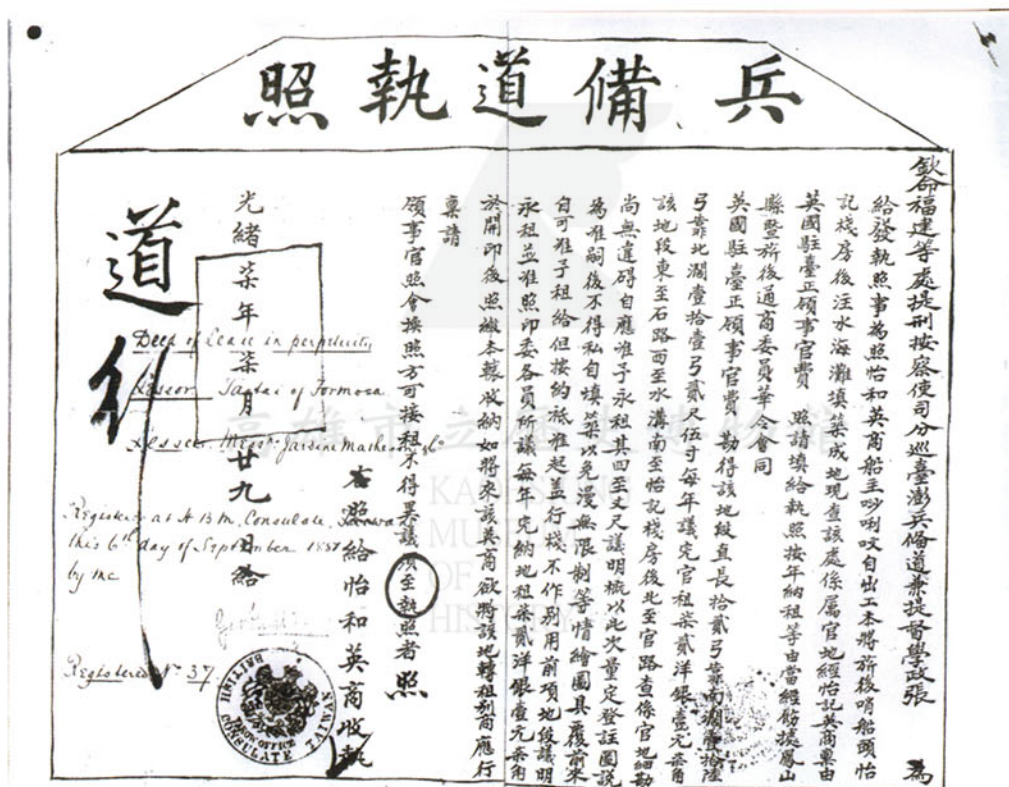 兵備道執照
欽命福建等處提刑按察使司分巡臺澎兵備道兼提督學政張 為
給發執照事為照怡和英商船主吵唎㕮自出工本將旂後哨船頭怡
記棧房後注水海灘填築成地現查該處係屬官地經怡記英商稟由
英國駐臺正領事官費 照請填給執照按年納租等由當經飭據鳳山
縣暨旂後通商委員華 令會同
英國駐臺正領事官費 勘得該地段直長拾貳弓靠南濶壹拾陸
弓靠北濶壹拾壹弓貳尺伍寸每年議定官租柒貳洋銀壹元柒角
該地段東至石路西至水溝南至怡記棧房後北至官路查係官地細勘
尚無違碍自應准予永租其四至丈尺議明概以此次量定登註圖說
為准嗣後不得私自填築以免漫無限制等情繪圖具覆前來
自可准予租給但按約祗准起蓋行棧不作別用前項地段議明
永租並准照印委各員所議每年完納地租柒貳洋銀壹元柒角
於開印後照繳本轅收納如將來該英商欲將該地轉租別商應行
稟請
領事官照會換照方可接租不得異議須至執照者
照
右照給怡和英商收執
光緒柒年柒月廿九日給
道行
Deed of Lease in perpetuity
Lessor Taotai of Formosa
Lessee Messrs Jardine Matheson & Co
Registered at H B M Consulate, Taiwan
this 6th day of September 1881
by me
Registered No 37.
BRITISH CONSULATE TAIWAN
高雄市立歷史博物館
KAOHSIUNG
MUSEUM
OF
HISTORY